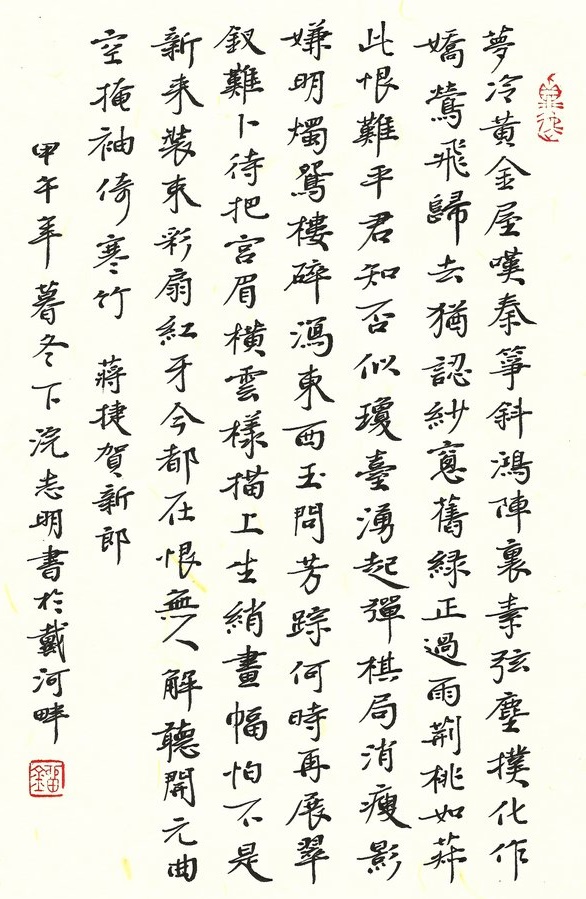 夢冷黃金屋嘆秦箏斜鴻陣裏素弦塵撲化作
嬌鶯飛歸去猶認紗窻舊綠正過雨荊桃如菽
此恨難平君知否似瓊臺湧起彈棋局消瘦影
嫌明燭鴛樓碎瀉東西玉問芳踪何時再展翠
釵難卜待把宮眉橫雲樣描上生綃畫幅怕不是
新來裝束彩扇紅牙今都在恨無人解聽開元曲
空掩袖倚寒竹 蔣捷賀新郎
甲午年暮冬下浣志明書於戴河畔